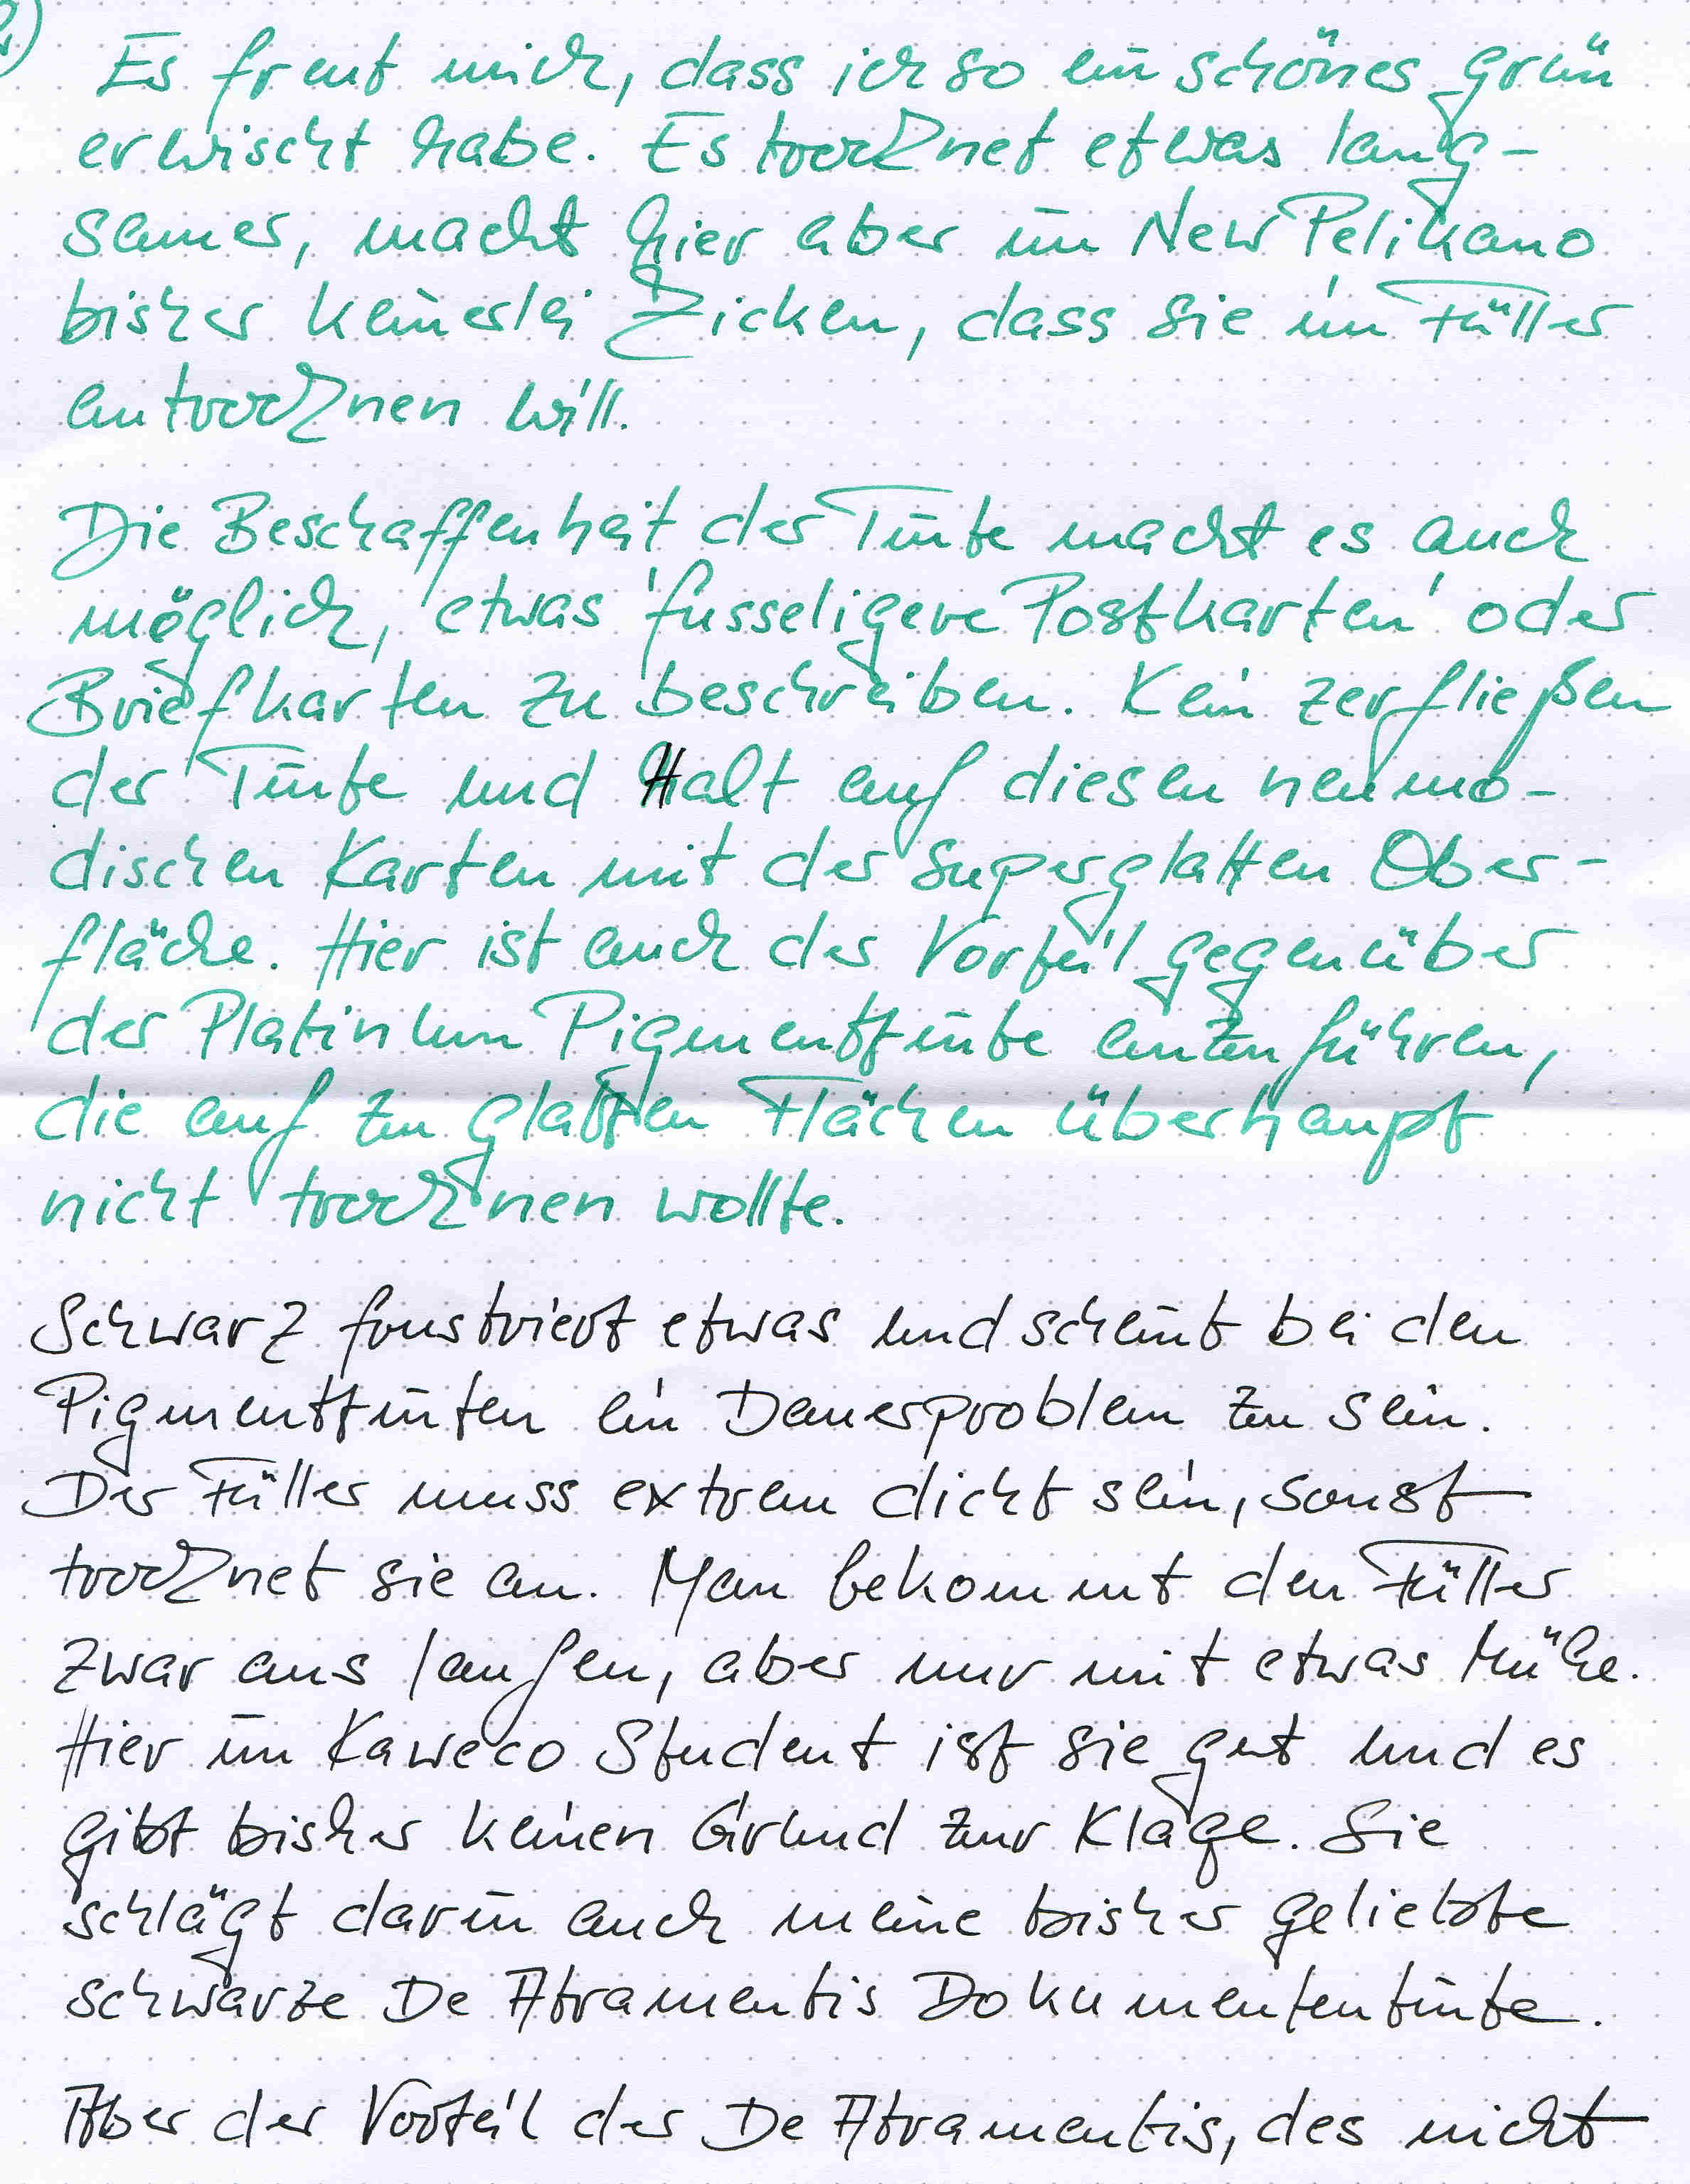 Es freut mich, dass ich so ein schönes Grün
erwischt habe. Es trocknet etwas lang-
samer, macht hier aber im New Pelikano
bisher keinerlei Zicken, dass sie im Füller
antrocknen will.
Die Beschaffenheit der Tinte macht es auch
möglich, etwas 'fusseligere Postkarten' oder
Briefkarten zu beschreiben. Kein zerfließen
der Tinte und Halt auf diesen neumo-
dischen Karten mit der superglatten Ober-
fläche. Hier ist auch der Vorteil gegenüber
der Platinum Pigmenttinte anzuführen,
die auf zu glatten Flächen überhaupt
nicht trocknen wollte.
Schwarz frustriert etwas und scheint bei den
Pigmenttinten ein Dauerproblem zu sein.
Der Füller muss extrem dicht sein, sonst
trocknet sie an. Man bekommt den Füller
zwar ans laufen, aber nur mit etwas Mühe.
Hier im Kaweco Student ist sie gut und es
gibt bisher keinen Grund zur Klage. Sie
schlägt darin auch meine bisher geliebte
schwarze De Atramentis Dokumententinte.
Aber der Vorteil der De Atramentis, des nicht